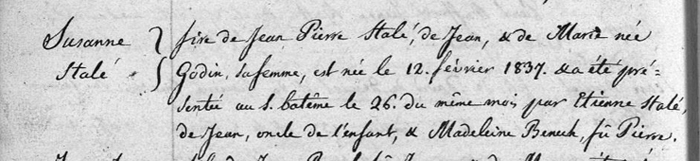 Susanne
Stalé
fire de Jean Pierre Stalé, de Jean, & de Marie née
Godin, sa femme, est née le 12. février 1837. & a été pré-
sentée au s. batême le 26. du même mois par Etienne Stalé,
de Jean, oncle de l'enfant, & Madeleine Benech, fû Pierre.